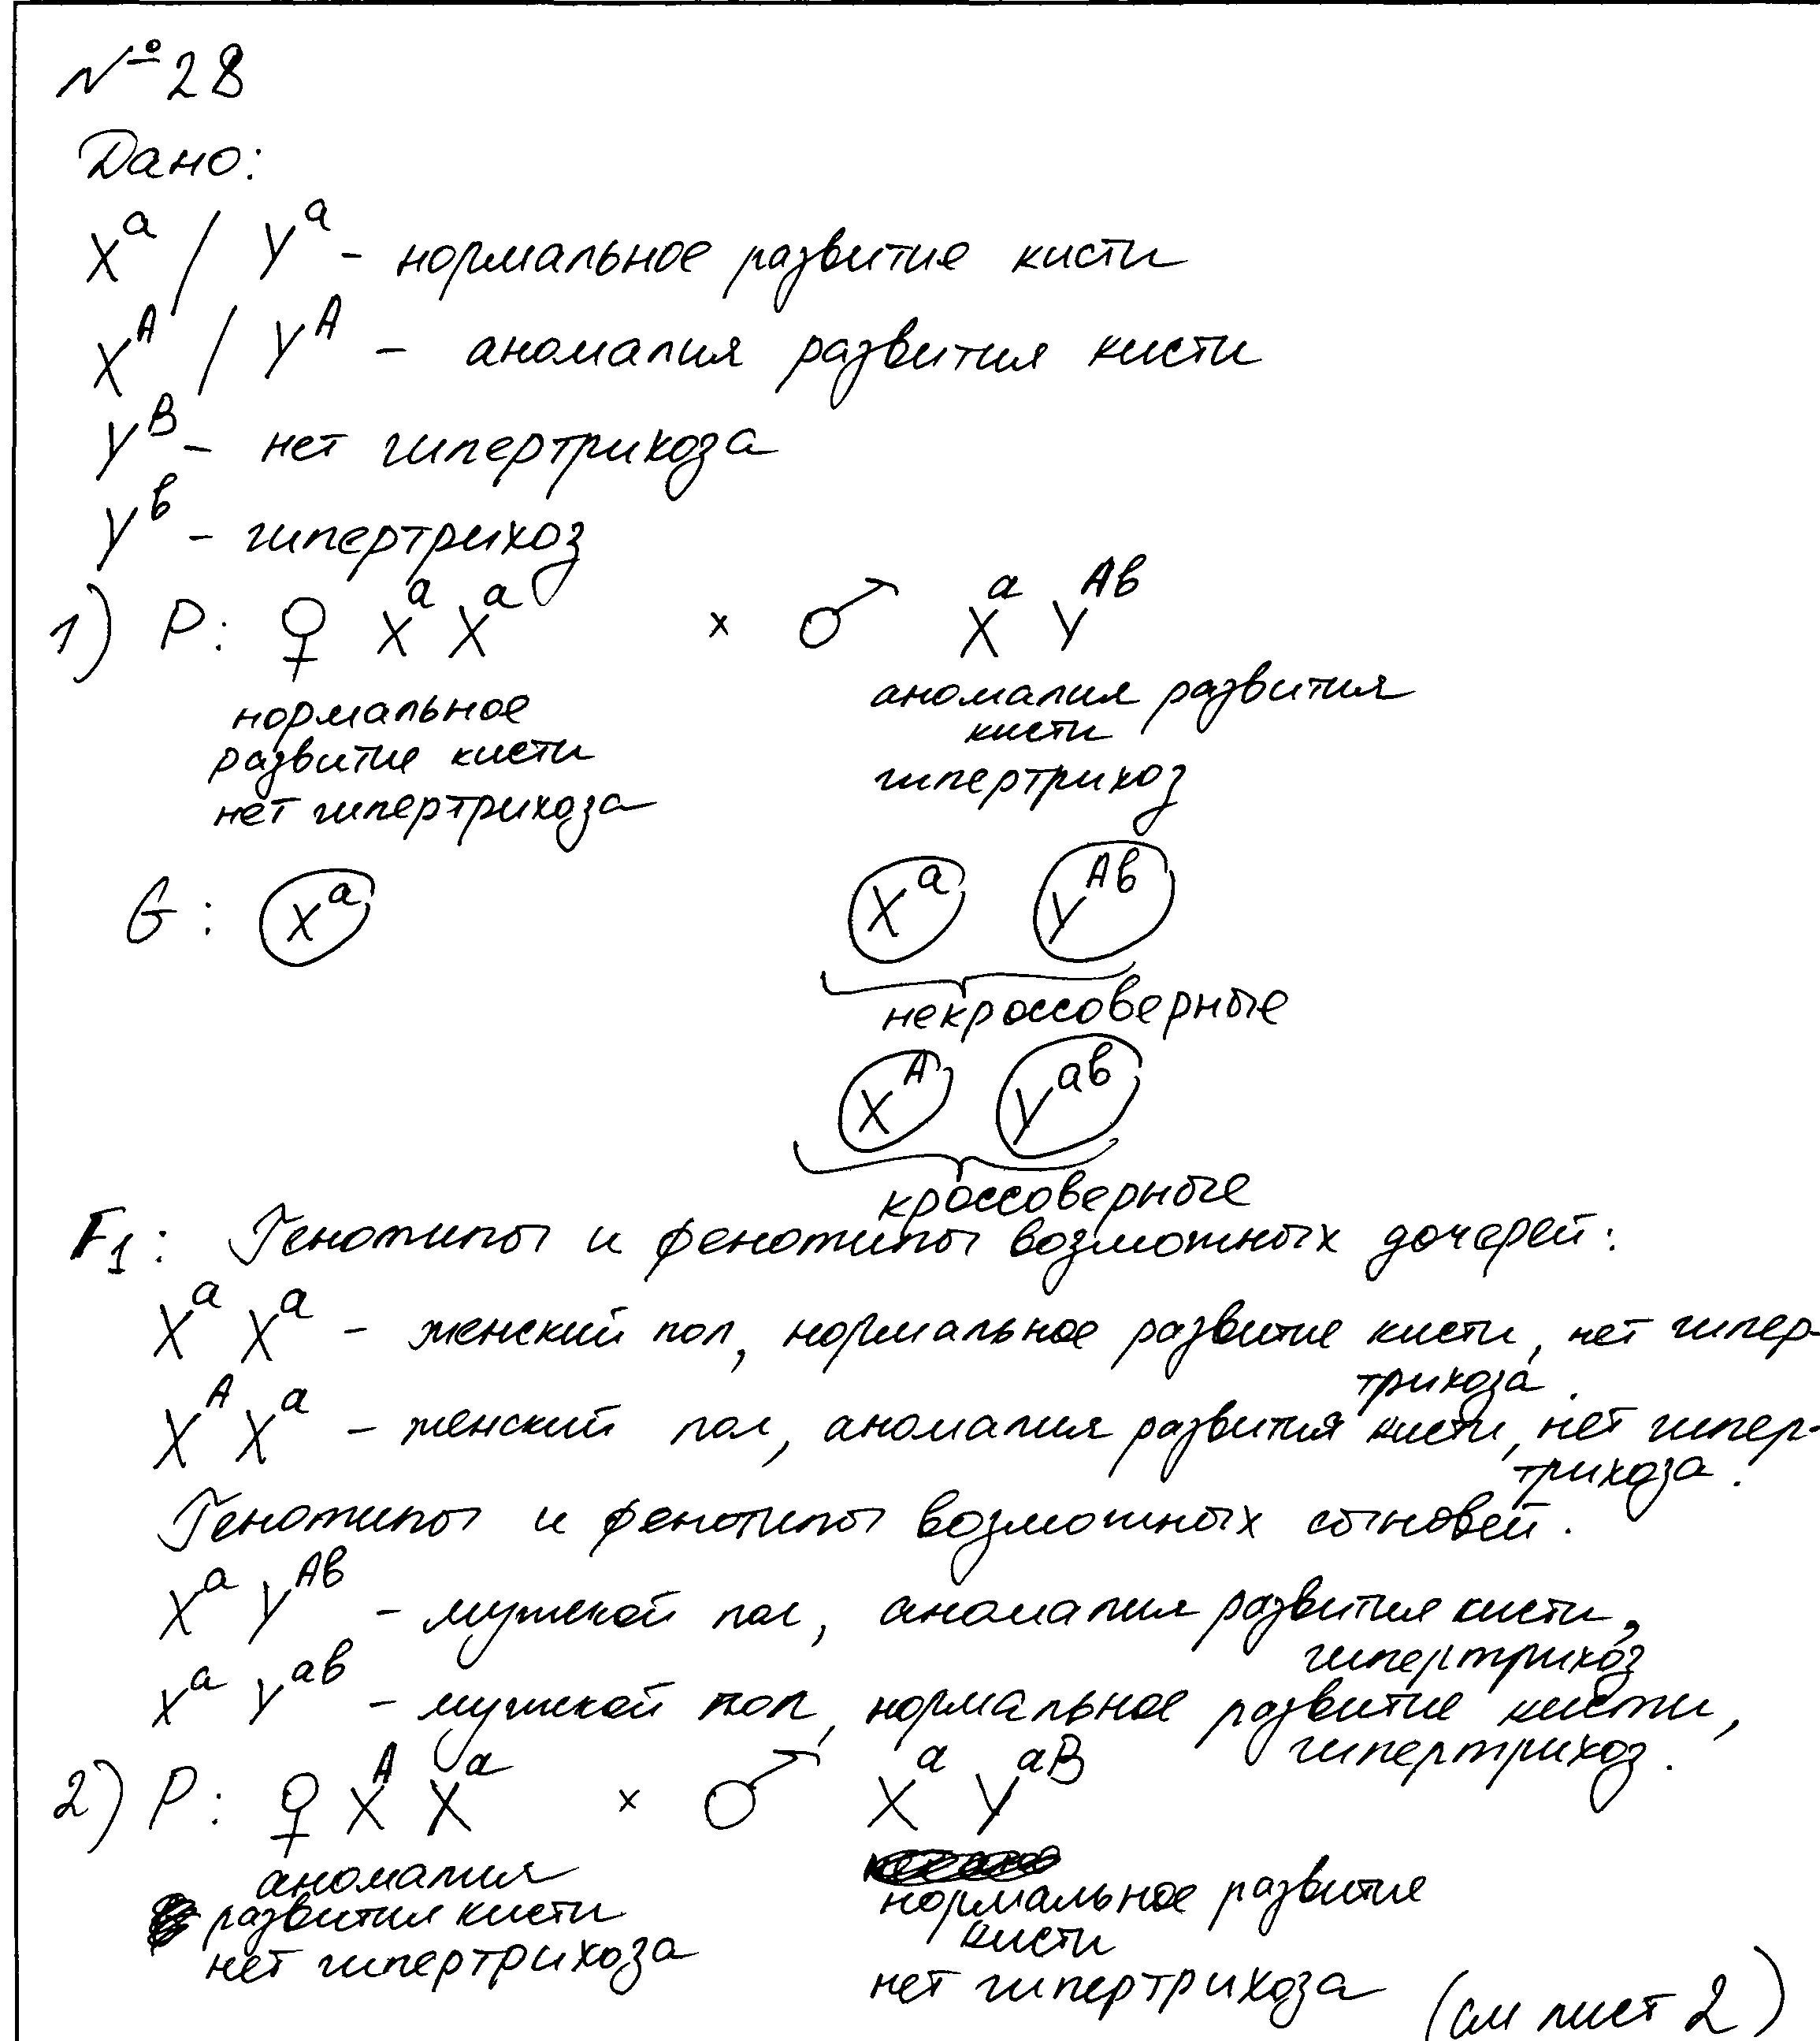 № 28
Дано:
X^a / Y^a - нормальное развитие кисти
X^A / Y^A - аномалия развития кисти
Y^B - нет гипертрихоза
Y^b - гипертрихоз
1) P: ♀ X^a X^a × ♂ X^a Y^Ab
нормальное аномалия развития
развитие кисти кисти
нет гипертрихоза гипертрихоз
G: X^a X^a Y^Ab
некроссоверные
X^A Y^ab
кроссоверные
F1: Генотипы и фенотипы возможных дочерей:
X^a X^a - женский пол, нормальное развитие кисти, нет гипер-
трихоза.
X^A X^a - женский пол, аномалия развития кисти, нет гипер-
трихоза.
Генотипы и фенотипы возможных сыновей.
X^a Y^Ab - мужской пол, аномалия развития кисти,
гипертрихоз
X^a Y^ab - мужской пол, нормальное развитие кисти,
гипертрихоз.
2) P: ♀ X^A X^a × ♂ X^a Y^aB
аномалия нормальное развитие
развития кисти кисти
нет гипертрихоза нет гипертрихоза (см лист 2)